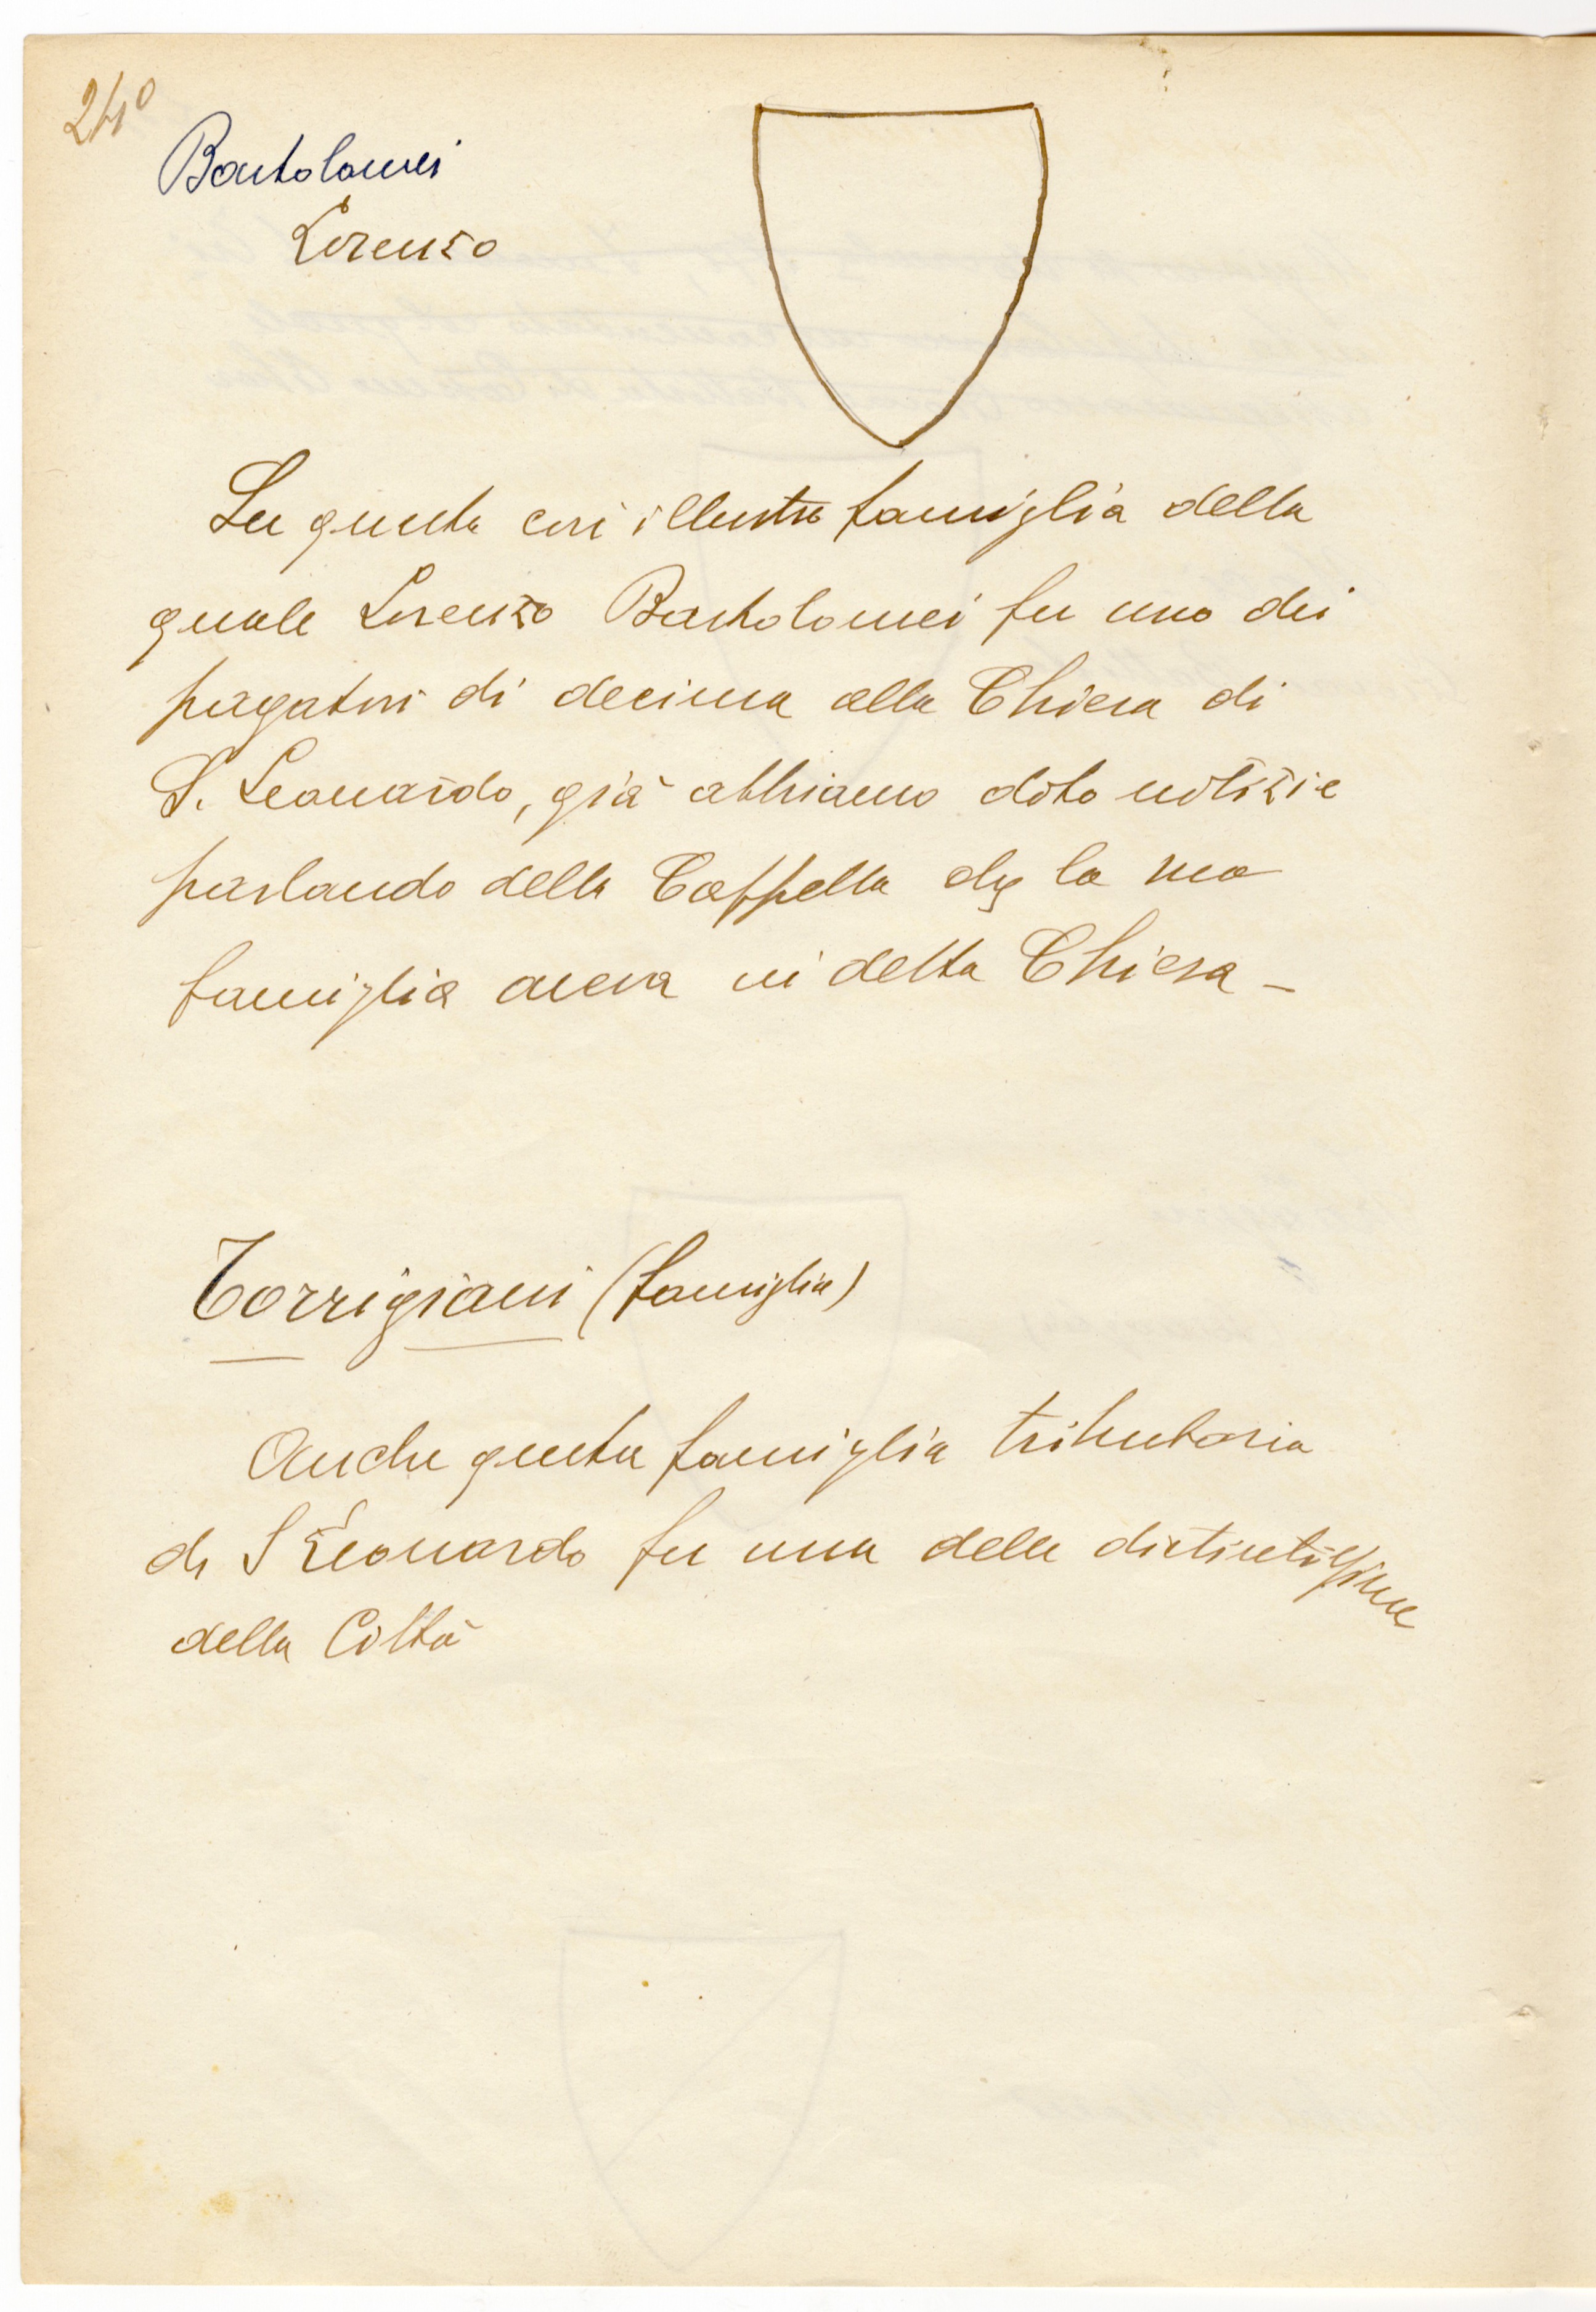 240
Bartolomei
Lorenzo
Su questa così illustre famiglia della
quale Lorenzo Bartolomei fu uno dei
pagatori di decima alla Chiesa di
S. Leonardo, già abbiamo dato notizie
parlando della Cappella che la sua
famiglia aveva in detta Chiesa -
Torrigiani (famiglia)
Anche questa famiglia tributaria
di S Leonardo fu una delle distintissime
della Città